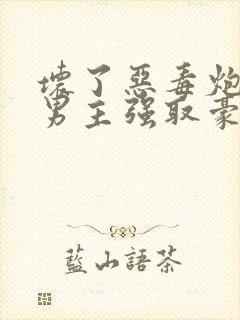 壞了惡毒炮
男主強取豪
藍小語茶